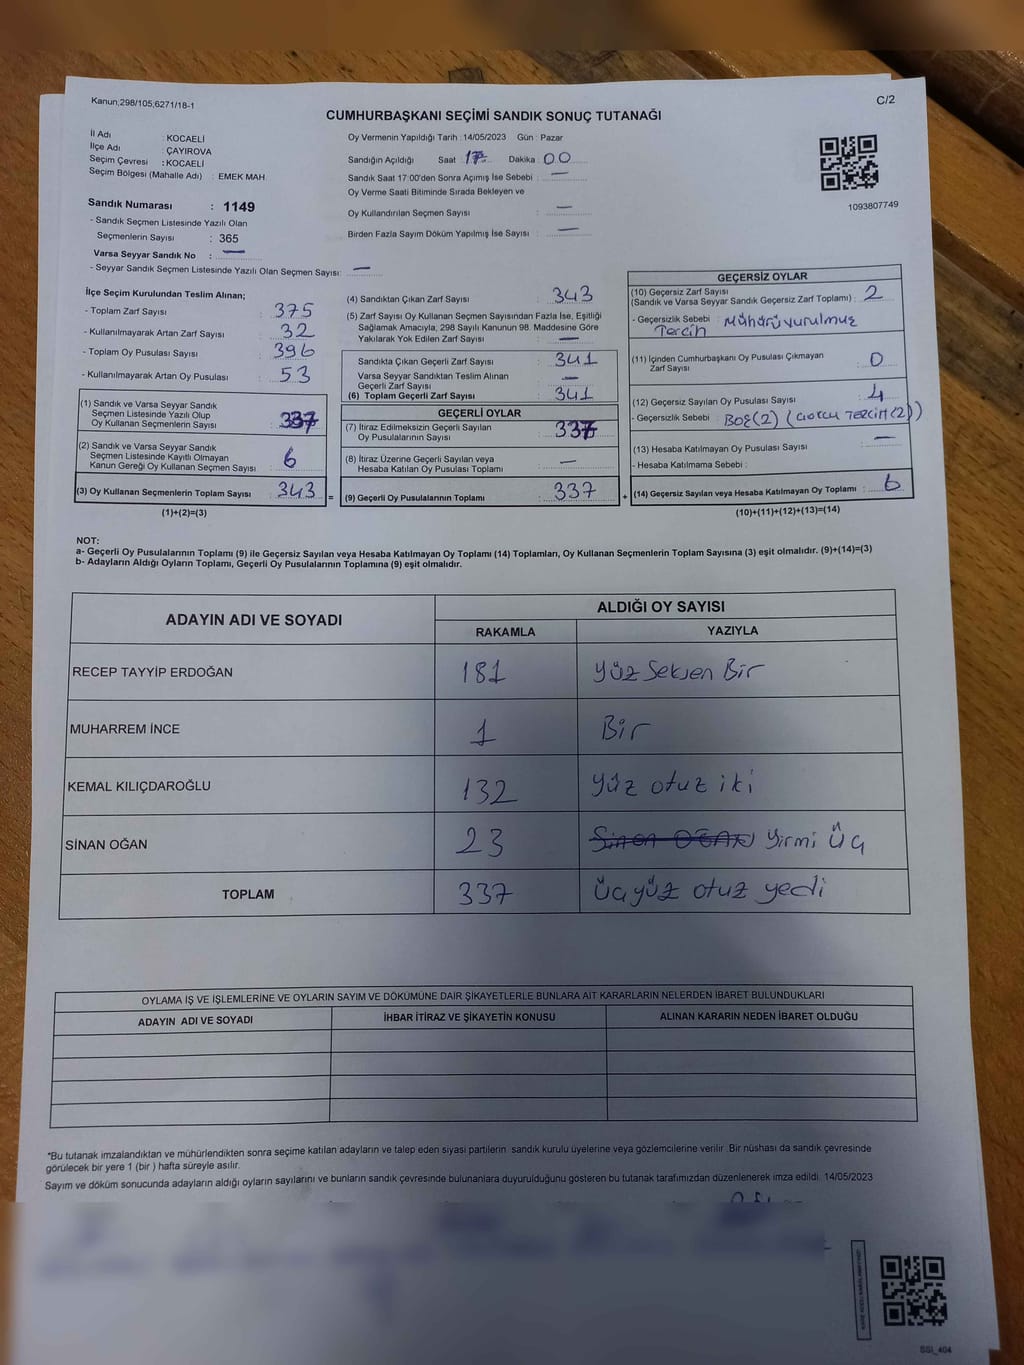 Kanun;298/105,6271/18-1
C/2
CUMHURBAŞKANI SEÇİMİ SANDIK SONUÇ TUTANAĞI
İl Adı : KOCAELİ
İlçe Adı : ÇAYIROVA
Seçim Çevresi : KOCAELİ
Seçim Bölgesi (Mahalle Adı) : EMEK MAH.
Sandık Numarası : 1149
- Sandık Seçmen Listesinde Yazılı Olan
Seçmenlerin Sayısı : 365
Varsa Seyyar Sandık No : —
- Seyyar Sandık Seçmen Listesinde Yazılı Olan Seçmen Sayısı: —
Oy Vermenin Yapıldığı Tarih :14/05/2023 Gün : Pazar
Sandığın Açıldığı Saat : 17 Dakika : 00
Sandık Saat 17:00'den Sonra Açımış İse Sebebi : —
Oy Verme Saati Bitiminde Sırada Bekleyen ve
Oy Kullandırılan Seçmen Sayısı : —
Birden Fazla Sayım Döküm Yapılmış İse Sayısı : —
1093807749
İlçe Seçim Kurulundan Teslim Alınan;
- Toplam Zarf Sayısı : 375
- Kullanılmayarak Artan Zarf Sayısı : 32
- Toplam Oy Pusulası Sayısı : 396
- Kullanılmayarak Artan Oy Pusulası : 53
(1) Sandık ve Varsa Seyyar Sandık
Seçmen Listesinde Yazılı Olup
Oy Kullanan Seçmenlerin Sayısı : 337
(2) Sandık ve Varsa Seyyar Sandık
Seçmen Listesinde Kayıtlı Olmayan
Kanun Gereği Oy Kullanan Seçmen Sayısı : 6
(3) Oy Kullanan Seçmenlerin Toplam Sayısı : 343
(1)+(2)=(3)
(4) Sandıktan Çıkan Zarf Sayısı : 343
(5) Zarf Sayısı Oy Kullanan Seçmen Sayısından Fazla İse, Eşitliği
Sağlamak Amacıyla, 298 Sayılı Kanunun 98. Maddesine Göre
Yakılarak Yok Edilen Zarf Sayısı : —
Sandıkta Çıkan Geçerli Zarf Sayısı : 341
Varsa Seyyar Sandıktan Teslim Alınan
Geçerli Zarf Sayısı : —
(6) Toplam Geçerli Zarf Sayısı : 341
GEÇERLİ OYLAR
(7) İtiraz Edilmeksizin Geçerli Sayılan
Oy Pusulalarının Sayısı : 337
(8) İtiraz Üzerine Geçerli Sayılan veya
Hesaba Katılan Oy Pusulası Toplamı : —
= (9) Geçerli Oy Pusulalarının Toplamı : 337 +
GEÇERSİZ OYLAR
(10) Geçersiz Zarf Sayısı
(Sandık ve Varsa Seyyar Sandık Geçersiz Zarf Toplamı) : 2
- Geçersizlik Sebebi : Mühürü vurulmuş
Tercih
(11) İçinden Cumhurbaşkanı Oy Pusulası Çıkmayan
Zarf Sayısı : 0
(12) Geçersiz Sayılan Oy Pusulası Sayısı : 4
- Geçersizlik Sebebi : BOŞ(2) (ÇOKLU TERCİH(2))
(13) Hesaba Katılmayan Oy Pusulası Sayısı : —
- Hesaba Katılmama Sebebi :
(14) Geçersiz Sayılan veya Hesaba Katılmayan Oy Toplamı : 6
(10)+(11)+(12)+(13)=(14)
NOT:
a- Geçerli Oy Pusulalarının Toplamı (9) ile Geçersiz Sayılan veya Hesaba Katılmayan Oy Toplamı (14) Toplamları, Oy Kullanan Seçmenlerin Toplam Sayısına (3) eşit olmalıdır. (9)+(14)=(3)
b- Adayların Aldığı Oyların Toplamı, Geçerli Oy Pusulalarının Toplamına (9) eşit olmalıdır.
ADAYIN ADI VE SOYADI
ALDIĞI OY SAYISI
RAKAMLA YAZIYLA
RECEP TAYYİP ERDOĞAN 181 Yüz Seksen Bir
MUHARREM İNCE 1 Bir
KEMAL KILIÇDAROĞLU 132 Yüz otuz iki
SİNAN OĞAN 23 Sinan OĞAN Yirmi Üç
TOPLAM 337 Üçyüz otuz yedi
OYLAMA İŞ VE İŞLEMLERİNE VE OYLARIN SAYIM VE DÖKÜMÜNE DAİR ŞİKAYETLERLE BUNLARA AİT KARARLARIN NELERDEN İBARET BULUNDUKLARI
ADAYIN ADI VE SOYADI İHBAR İTİRAZ VE ŞİKAYETİN KONUSU ALINAN KARARIN NEDEN İBARET OLDUĞU
*Bu tutanak imzalandıktan ve mühürlendikten sonra seçime katılan adayların ve talep eden siyasi partilerin sandık kurulu üyelerine veya gözlemcilerine verilir. Bir nüshası da sandık çevresinde
görülecek bir yere 1 (bir ) hafta süreyle asılır.
Sayım ve döküm sonucunda adayların aldığı oyların sayılarını ve bunların sandık çevresinde bulunanlara duyurulduğunu gösteren bu tutanak tarafımızdan düzenlenerek imza edildi. 14/05/2023
SSI_404